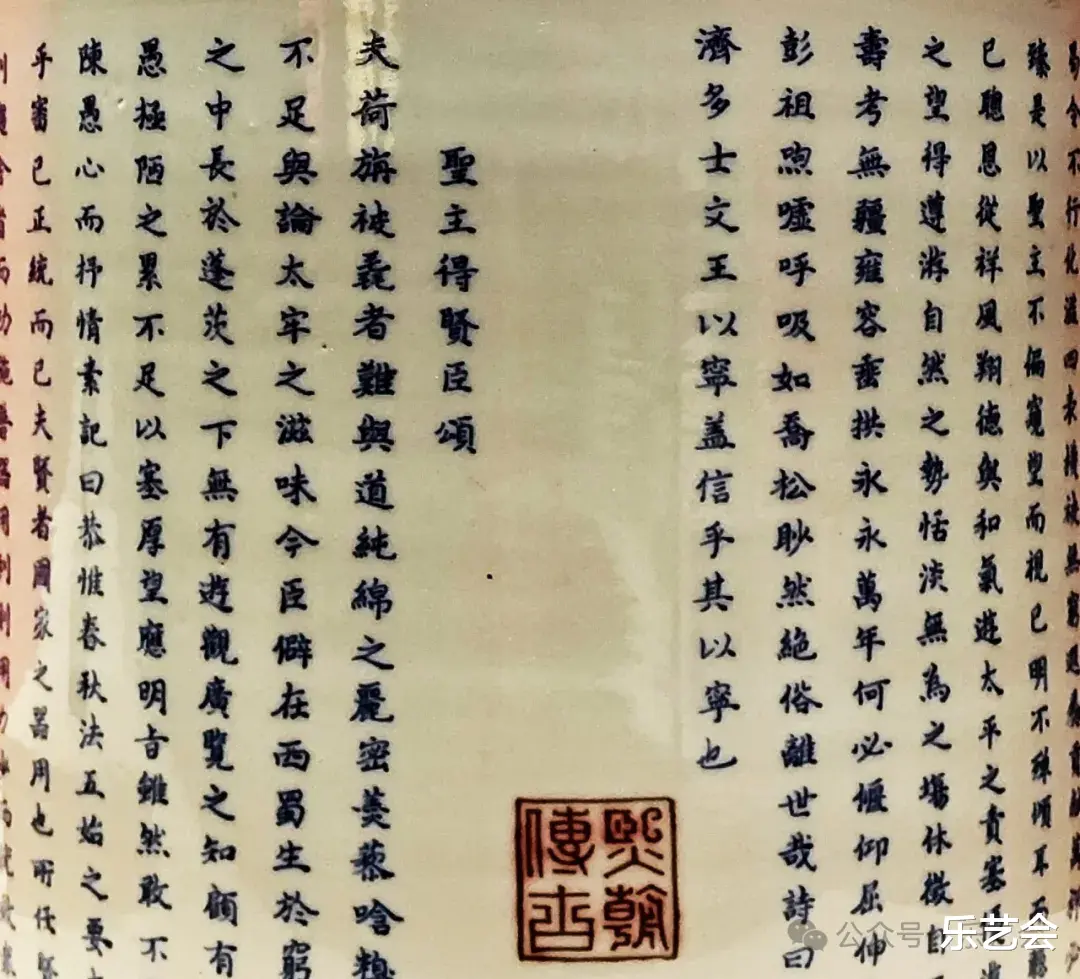 不行化溢四表橫被無窮遐
臻是以聖主不偏窺望而視已明不殫傾耳而
已聰恩從祥風翔德與和氣遊太平之責塞
之望得遵游自然之勢恬淡無為之場休徵自
壽考無疆雍容垂拱永永萬年何必偃仰屈伸
彭祖喣噓呼吸如喬松眇然絕俗離世哉詩曰
濟多士文王以寧盖信乎其以寧也
熙朝
傳古
聖主得賢臣頌
夫荷旃被毳者難與道純綿之麗密羮藜唅糗
不足與論太牢之滋味今臣僻在西蜀生於窮
之中長於蓬茨之下無有遊觀廣覽之知顧有
愚極陋之累不足以塞厚望應明旨雖然敢不
陳愚心而抒情素記曰恭惟春秋法五始之要
乎審已正統而已夫賢者國家之器用也所任賢
舍省而功施普器用利則用力少而就效
公众号
乐艺会